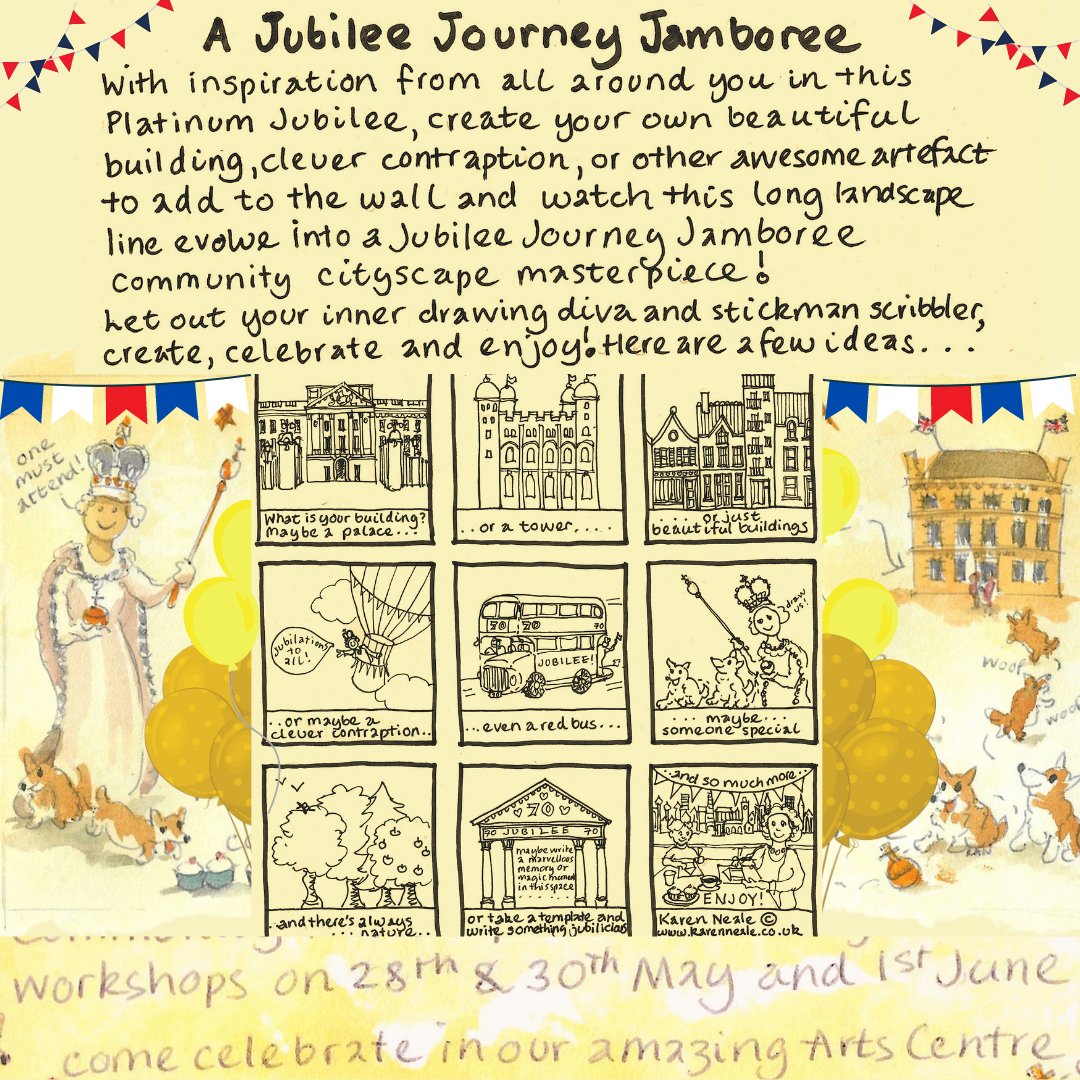 A Jubilee Journey Jamboree
With inspiration from all around you in this
Platinum Jubilee, create your own beautiful
building, clever contraption, or other awesome artefact
to add to the wall and watch this long landscape
line evolve into a Jubilee Journey Jamboree
community cityscape masterpiece!
Let out your inner drawing diva and stickman scribbler,
create, celebrate and enjoy! Here are a few ideas...
one
must
attend!
What is your building?
Maybe a palace...
..or a tower.....
.....or just
beautiful buildings
Jubilations
to
all!
..or maybe a
clever contraption..
70 70 70
JUBILEE!
...even a red bus...
draw
us!
... maybe...
someone special
woof
woof
..and there's always
... nature..
70
70 JUBILEE 70
maybe write
a marvellous
memory or
magic moment
in this space
.......
or take a template and
write something jubilicious
..and so much more..
ENJOY!
Karen Neale ©
www.karenneale.co.uk
workshops on 28th & 30th May and 1st June
come celebrate in our amazing Arts Centre